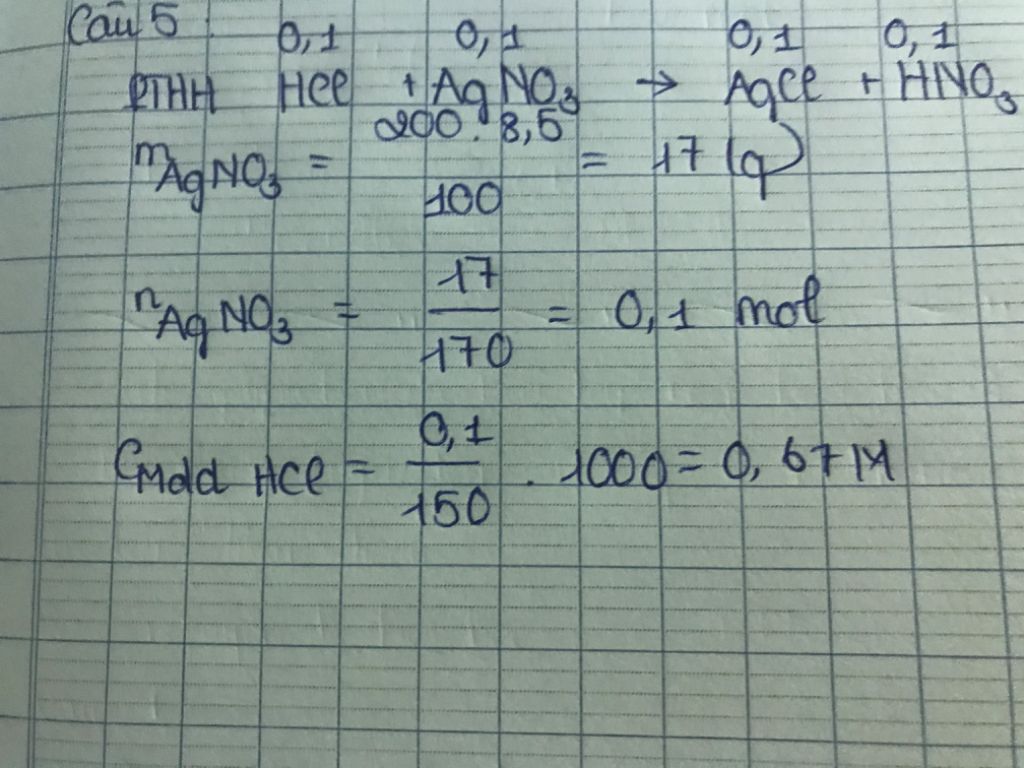 Câu 5
0,1 0,1 0,1 0,1
PTHH HCl + AgNO3 → AgCl + HNO3
mAgNO3 = 200. 8,5 / 100 = 17 (g)
nAgNO3 = 17 / 170 = 0,1 mol
CMdd HCl = 0,1 / 150 . 1000 = 0,67 M